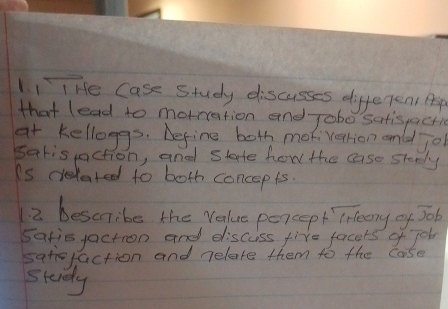 1.1 The Case Study discusses different Asp
that lead to motivation and Jobo Satisfactio
at Kelloggs. Define both motivation and Job
Satisfaction, and state how the case study
is related to both concepts.
1.2 Describe the Value percept Theory of Job
Satisfaction and discuss five facets of Job
satisfaction and relate them to the Case
Study